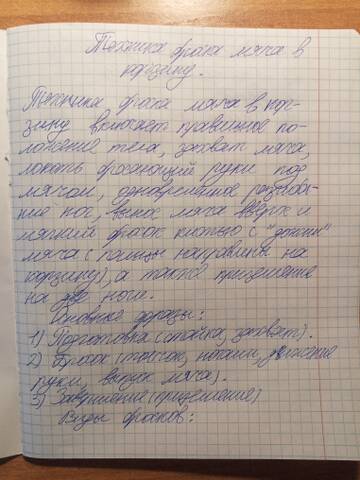 Техника броска мяча в
корзину.
Техника броска мяча в кор-
зину включает правильное по-
ложение тела, захват мяча,
локоть бросающей руки под
мячом, одновременное разгиба-
ние ног, вынос мяча вверх и
мягкий бросок кистью с "
мяча (пальцы направлены на
корзину), а также приземление
на две ноги.
Основные фразы:
1) Подготовка (стойка, захват).
2) Бросок (толчок, ногами, движение
руки, выпуск мяча).
3) Завершение (приземление)
Виды бросков: